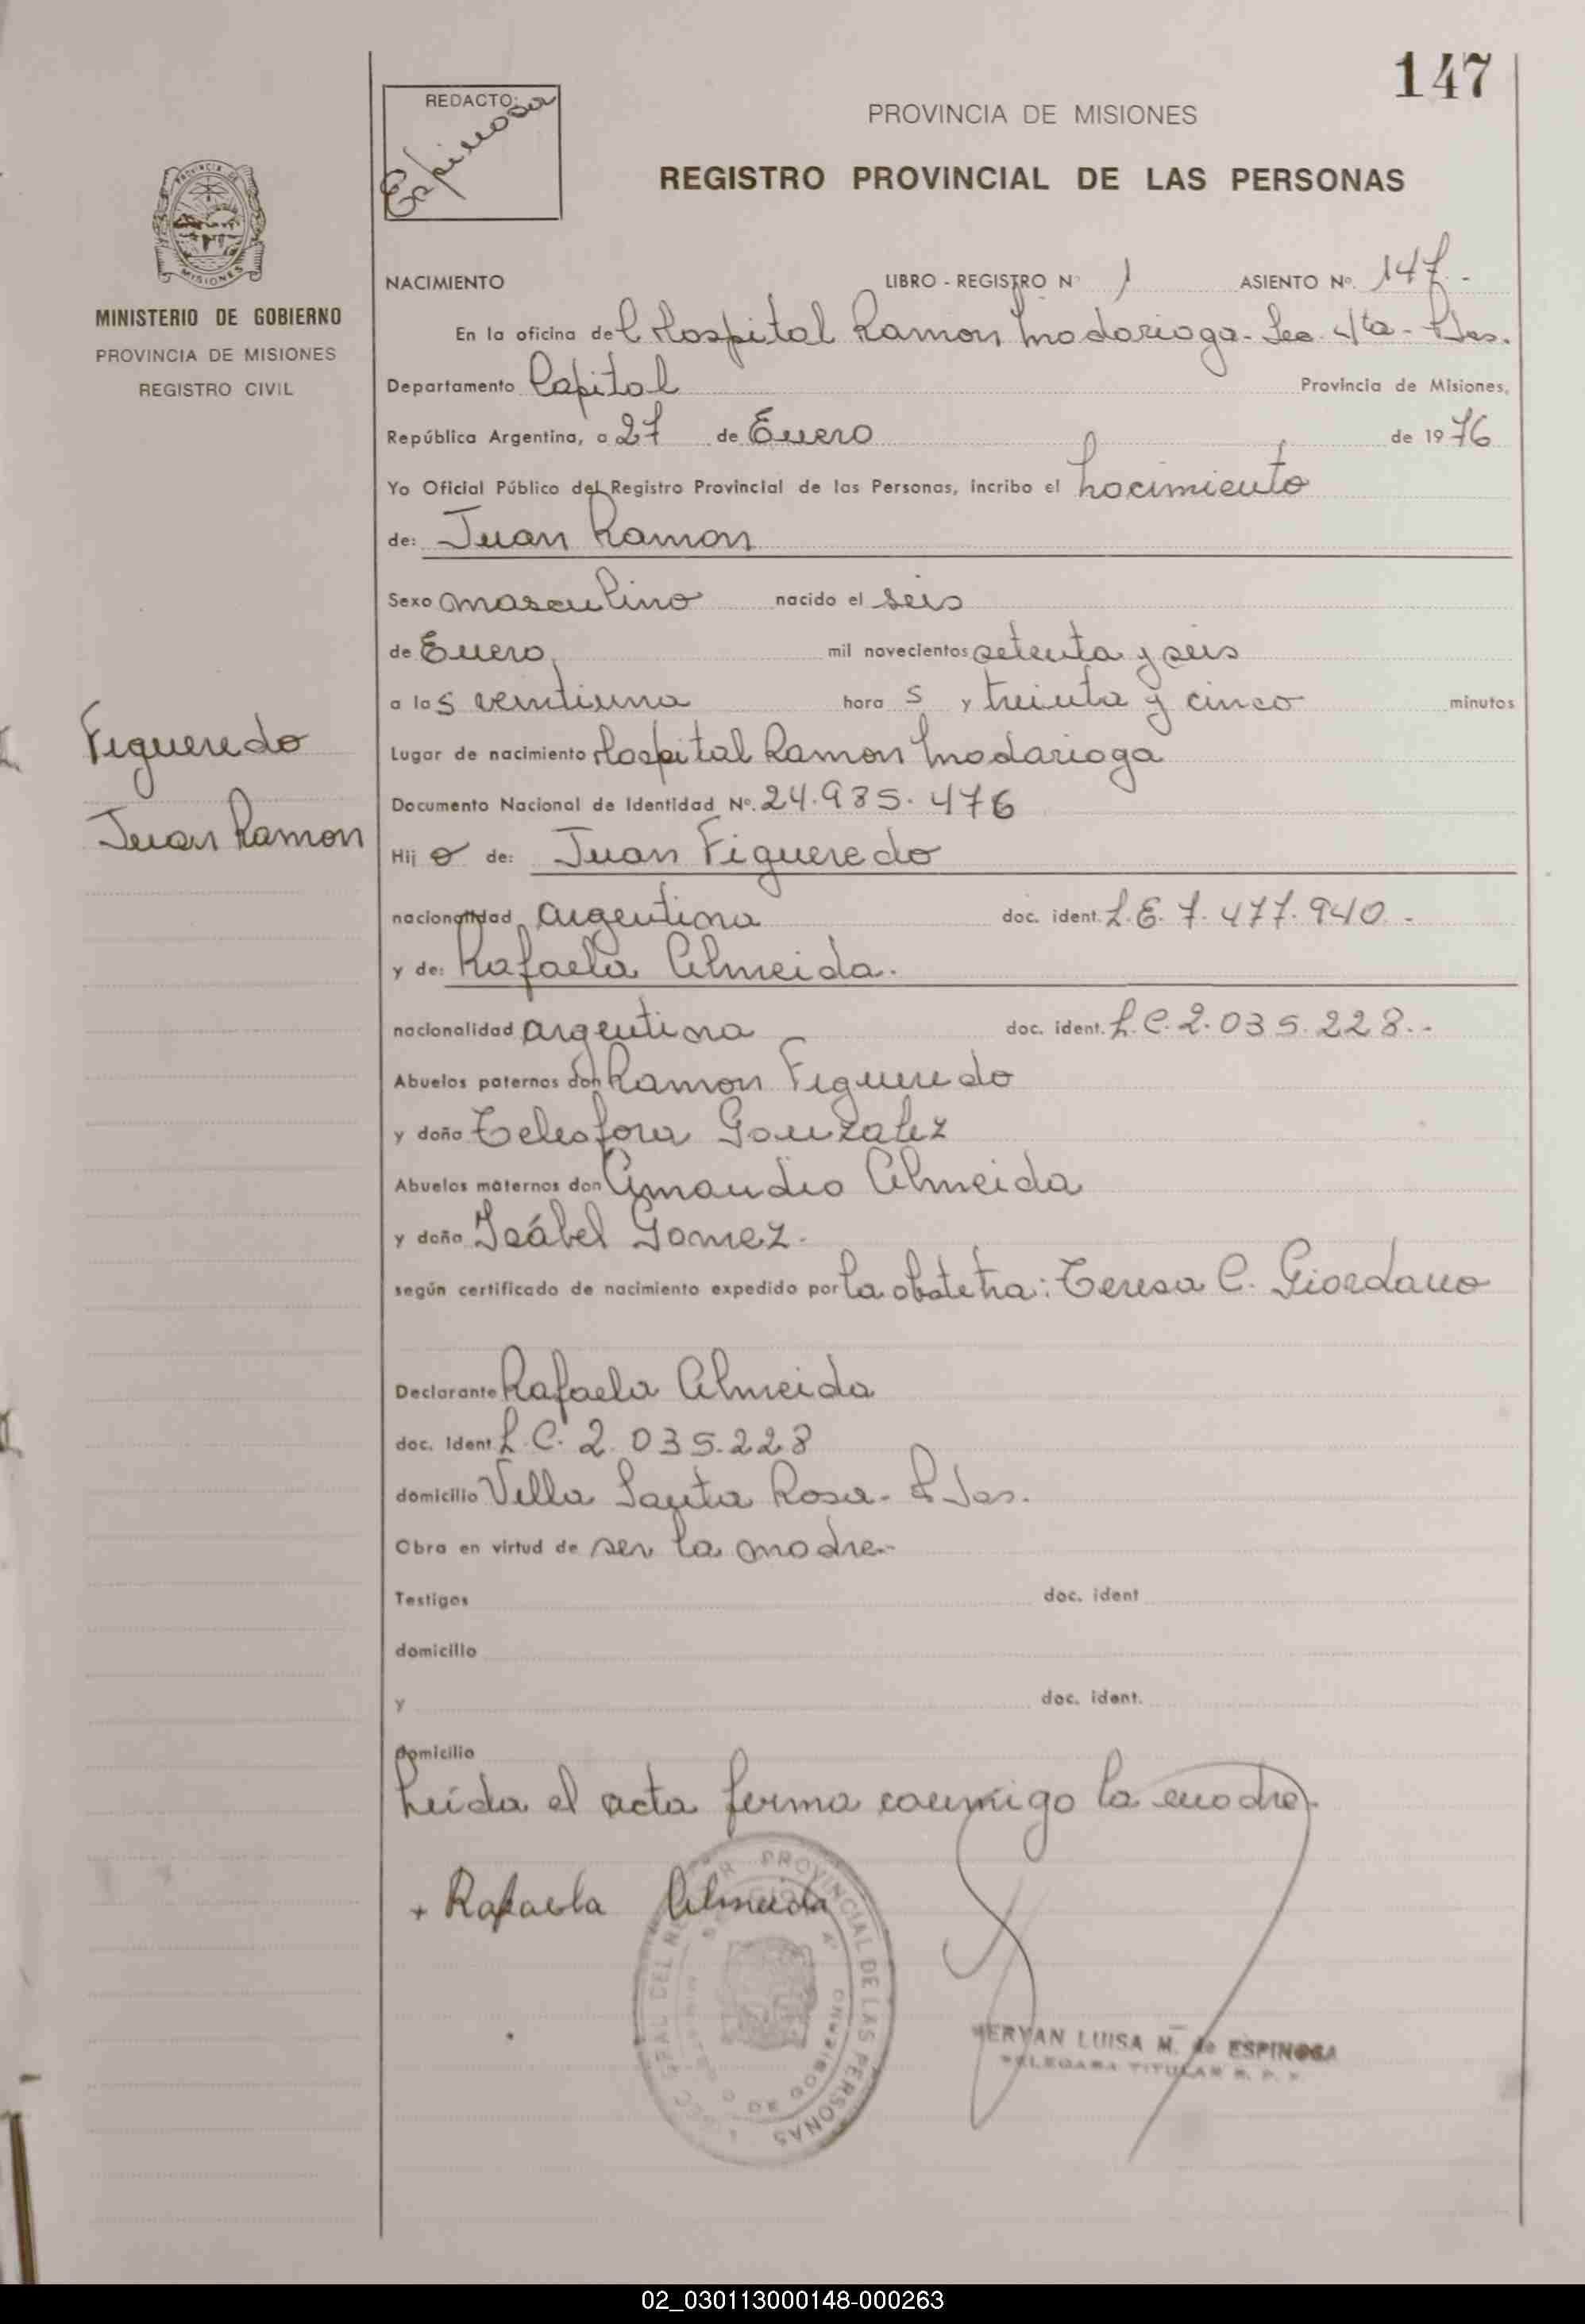 147
REDACTO:
Espinosa
PROVINCIA DE MISIONES
REGISTRO PROVINCIAL DE LAS PERSONAS
MISIONES
MINISTERIO DE GOBIERNO
PROVINCIA DE MISIONES
REGISTRO CIVIL
Figueredo
Juan Ramon
NACIMIENTO LIBRO - REGISTRO Nº 1 ASIENTO Nº. 147.-
En la oficina del Hospital Ramon Madariaga - Sec. 4ta - Pdas.
Departamento Capital Provincia de Misiones,
República Argentina, a 27 de Enero de 1976
Yo Oficial Público del Registro Provincial de las Personas, incribo el nacimiento
de: Juan Ramon
Sexo masculino nacido el seis
de Enero, mil novecientos setenta y seis
a las veintiuna horas y treinta y cinco minutos
Lugar de nacimiento Hospital Ramon Madariaga
Documento Nacional de Identidad Nº. 24.985.476
Hijo de: Juan Figueredo
nacionalidad argentina doc. ident. L.E. 7.477.940.-
y de: Rafaela Almeida.
nacionalidad argentina doc. ident. L.C. 2.035.228.-
Abuelos paternos don Ramon Figueredo
y doña Telesfora Gonzalez
Abuelos maternos don Amandio Almeida
y doña Isábel Gomez.
según certificado de nacimiento expedido por la obstetra: Teresa C. Giordano
Declarante Rafaela Almeida
doc. Ident. L.C. 2.035.228
domicilio Villa Santa Rosa - Pdas.
Obra en virtud de ser la madre.-
Testigos doc. ident
domicilio
y doc. ident.
domicilio
Leída el acta firma conmigo la madre.-
+ Rafaela Almeida
PROVINCIAL DE LAS PERSONAS
MERYAN LUISA M. de ESPINOSA
DELEGADA TITULAR R. P. P.
02_030113000148-000263